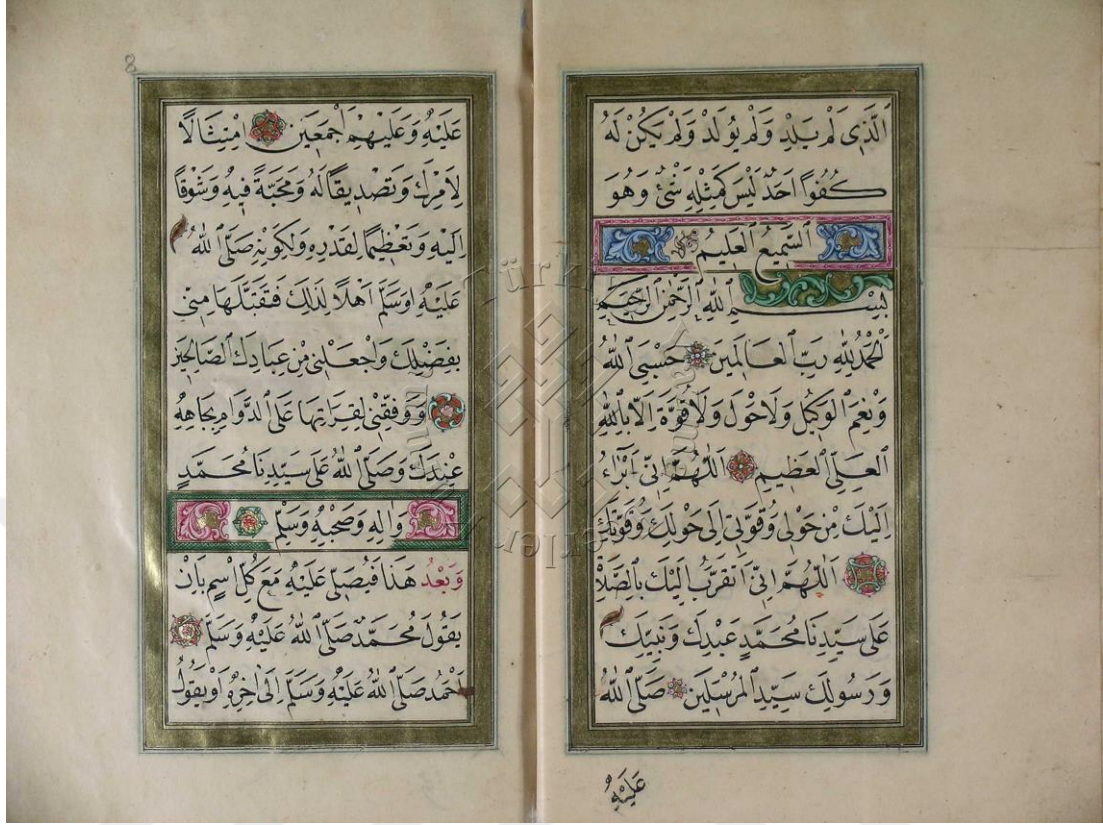 اَلَّذِى لَمْ يَلِدْ وَلَمْ يُولَدْ وَلَمْ يَكُنْ لَهُ
كُفُوًا اَحَدٌ لَيْسَ كَمِثْلِهِ شَىْءٌ وَهُوَ
اَلسَّمِيعُ الْعَلِيمُ
بِسْمِ اللهِ الرَّحْمٰنِ الرَّحِيمِ
اَلْحَمْدُ لِلّٰهِ رَبِّ الْعَالَمِينَ حَسْبِىَ اللهُ
وَنِعْمَ الْوَكِيلُ وَلَاحَوْلَ وَلَاقُوَّةَ اِلَّا بِاللهِ
الْعَلِىِّ الْعَظِيمِ اَللّٰهُمَّ اِنِّى اَبْرَاءُ
اِلَيْكَ مِنْ حَوْلِى وَقُوَّتِى اِلَى حَوْلِكَ وَقُوَّتِكَ
اَللّٰهُمَّ اِنِّى اَتَقَرَّبُ اِلَيْكَ بِالصَّلَاةِ
عَلَى سَيِّدِنَا مُحَمَّدٍ عَبْدِكَ وَنَبِيِّكَ
وَرَسُولِكَ سَيِّدِ الْمُرْسَلِينَ صَلَّى اللهُ
عَلَيْهِ
8
عَلَيْهِ وَعَلَيْهِمْ اَجْمَعِينَ اِمْتِثَالًا
لِاَمْرِكَ وَتَصْدِيقًا لَهُ وَمَحَبَّةً فِيهِ وَشَوْقًا
اِلَيْهِ وَتَعْظِيمًا لِقَدْرِهِ وَلِكَوْنِهِ صَلَّى اللهُ
عَلَيْهِ وَسَلَّمَ اَهْلًا لِذٰلِكَ فَتَقَبَّلْهَا مِنِّى
بِفَضْلِكَ وَاجْعَلْنِى مِنْ عِبَادِكَ الصَّالِحِينَ
وَوَفِّقْنِى لِقِرَاءَتِهَا عَلَى الدَّوَامِ بِجَاهِهِ
عِنْدَكَ وَصَلَّى اللهُ عَلَى سَيِّدِنَا مُحَمَّدٍ
وَاٰلِهِ وَصَحْبِهِ وَسَلَّمَ
وَبَعْدُ هَذَا فَيُصَلِّى عَلَيْهِ مَعَ كُلِّ اسْمٍ بِاَنْ
يَقُولَ مُحَمَّدٌ صَلَّى اللهُ عَلَيْهِ وَسَلَّمَ
اَحْمَدُ صَلَّى اللهُ عَلَيْهِ وَسَلَّمَ اِلَى اٰخِرِهِ اَوْ يَقُولُ